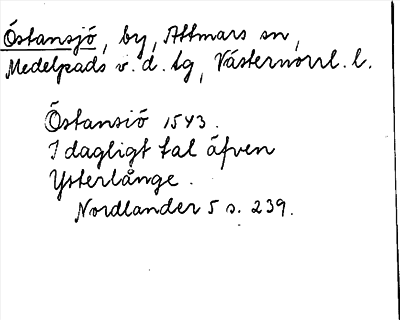 Östansjö, by, Attmars sn,
Medelpads v. d. tg, Västernorrl. l.
Östansiö 1543.
I dagligt tal äfven
Ysterlånge.
Nordlander 5 s. 239.